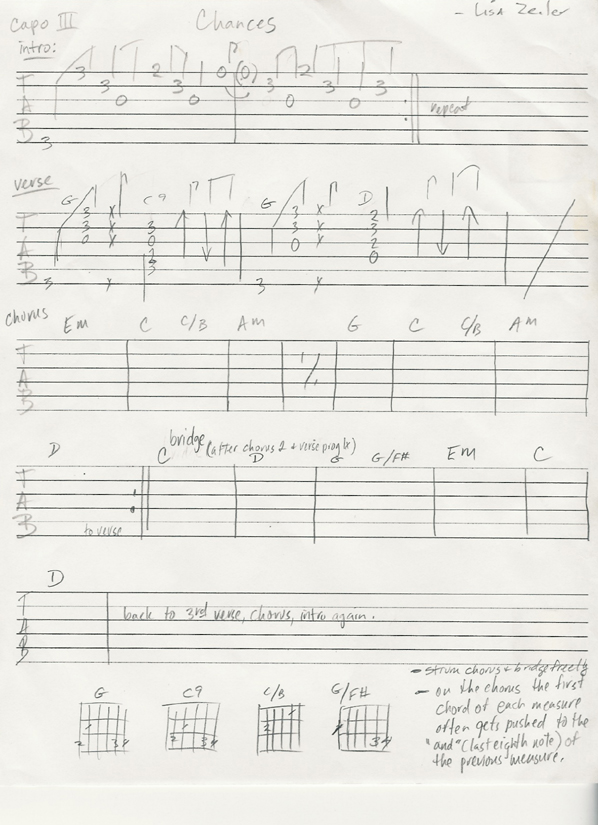 Capo III Chances - Lisa Zeiler
intro:
3 2 0 (0) 2
3 3 3 3
T
A 0 0 0 0 repeat
B
3
verse
G C9 G D
T 3 x 3 x 2
3 x 3 3 x 3
A 0 x 0 0 x 2
2 0
B 3
3 x 3 x
Chorus
Em C C/B Am G C C/B Am
T
A %
B
bridge (after chorus 2 + verse prog 1x)
D C D G G/F# Em C
T
A
B to verse
D
T
back to 3rd verse, chorus, intro again.
A
B
- strum chorus + bridge freely
G C9 C/B G/F# - on the chorus the first
chord of each measure
often gets pushed to the
"and" (last eighth note) of
the previous measure.
1 2 3 4 1 2 3 4 1 2 3 4